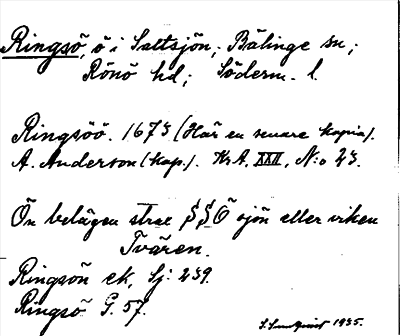 Ringsö, ö i Saltsjön; Bälinge sn;
Rönö hd; Söderm. l.
Ringsöö. 1673 (Här en senare kopia).
A. Anderson (kap.). Kr.A. XXII, N:o 23.
Ön belägen strax SSÖ sjön eller viken
Tvären.
Ringsön ek, Sj: 239.
Ringsö G. 57.
1935.